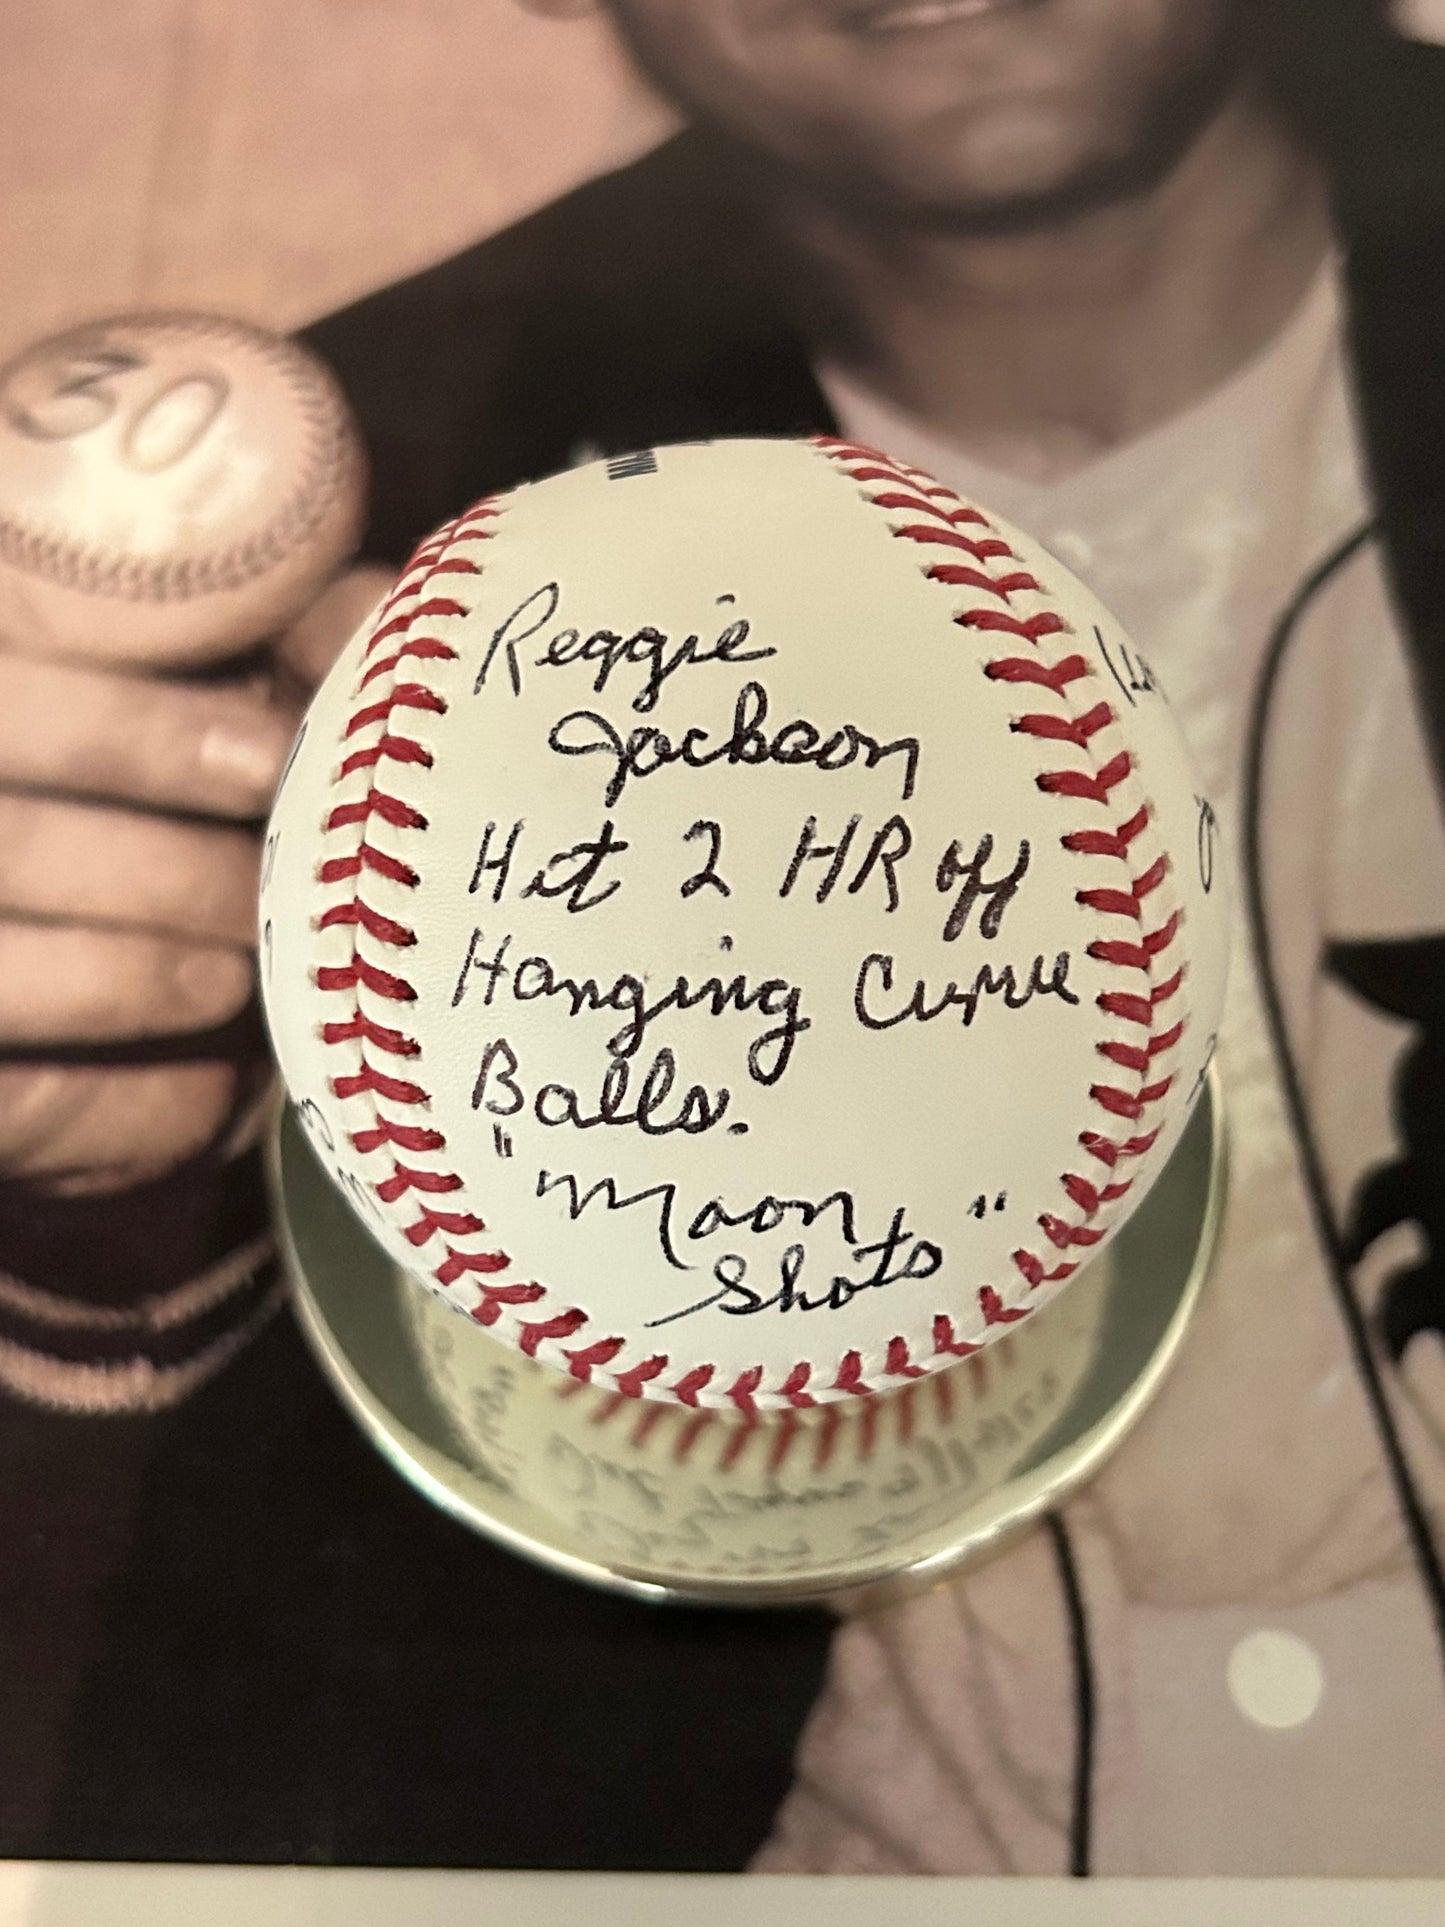 30
Reggie
Jackson
Hit 2 HR off
Hanging Curve
Balls.
"Moon
Shots"